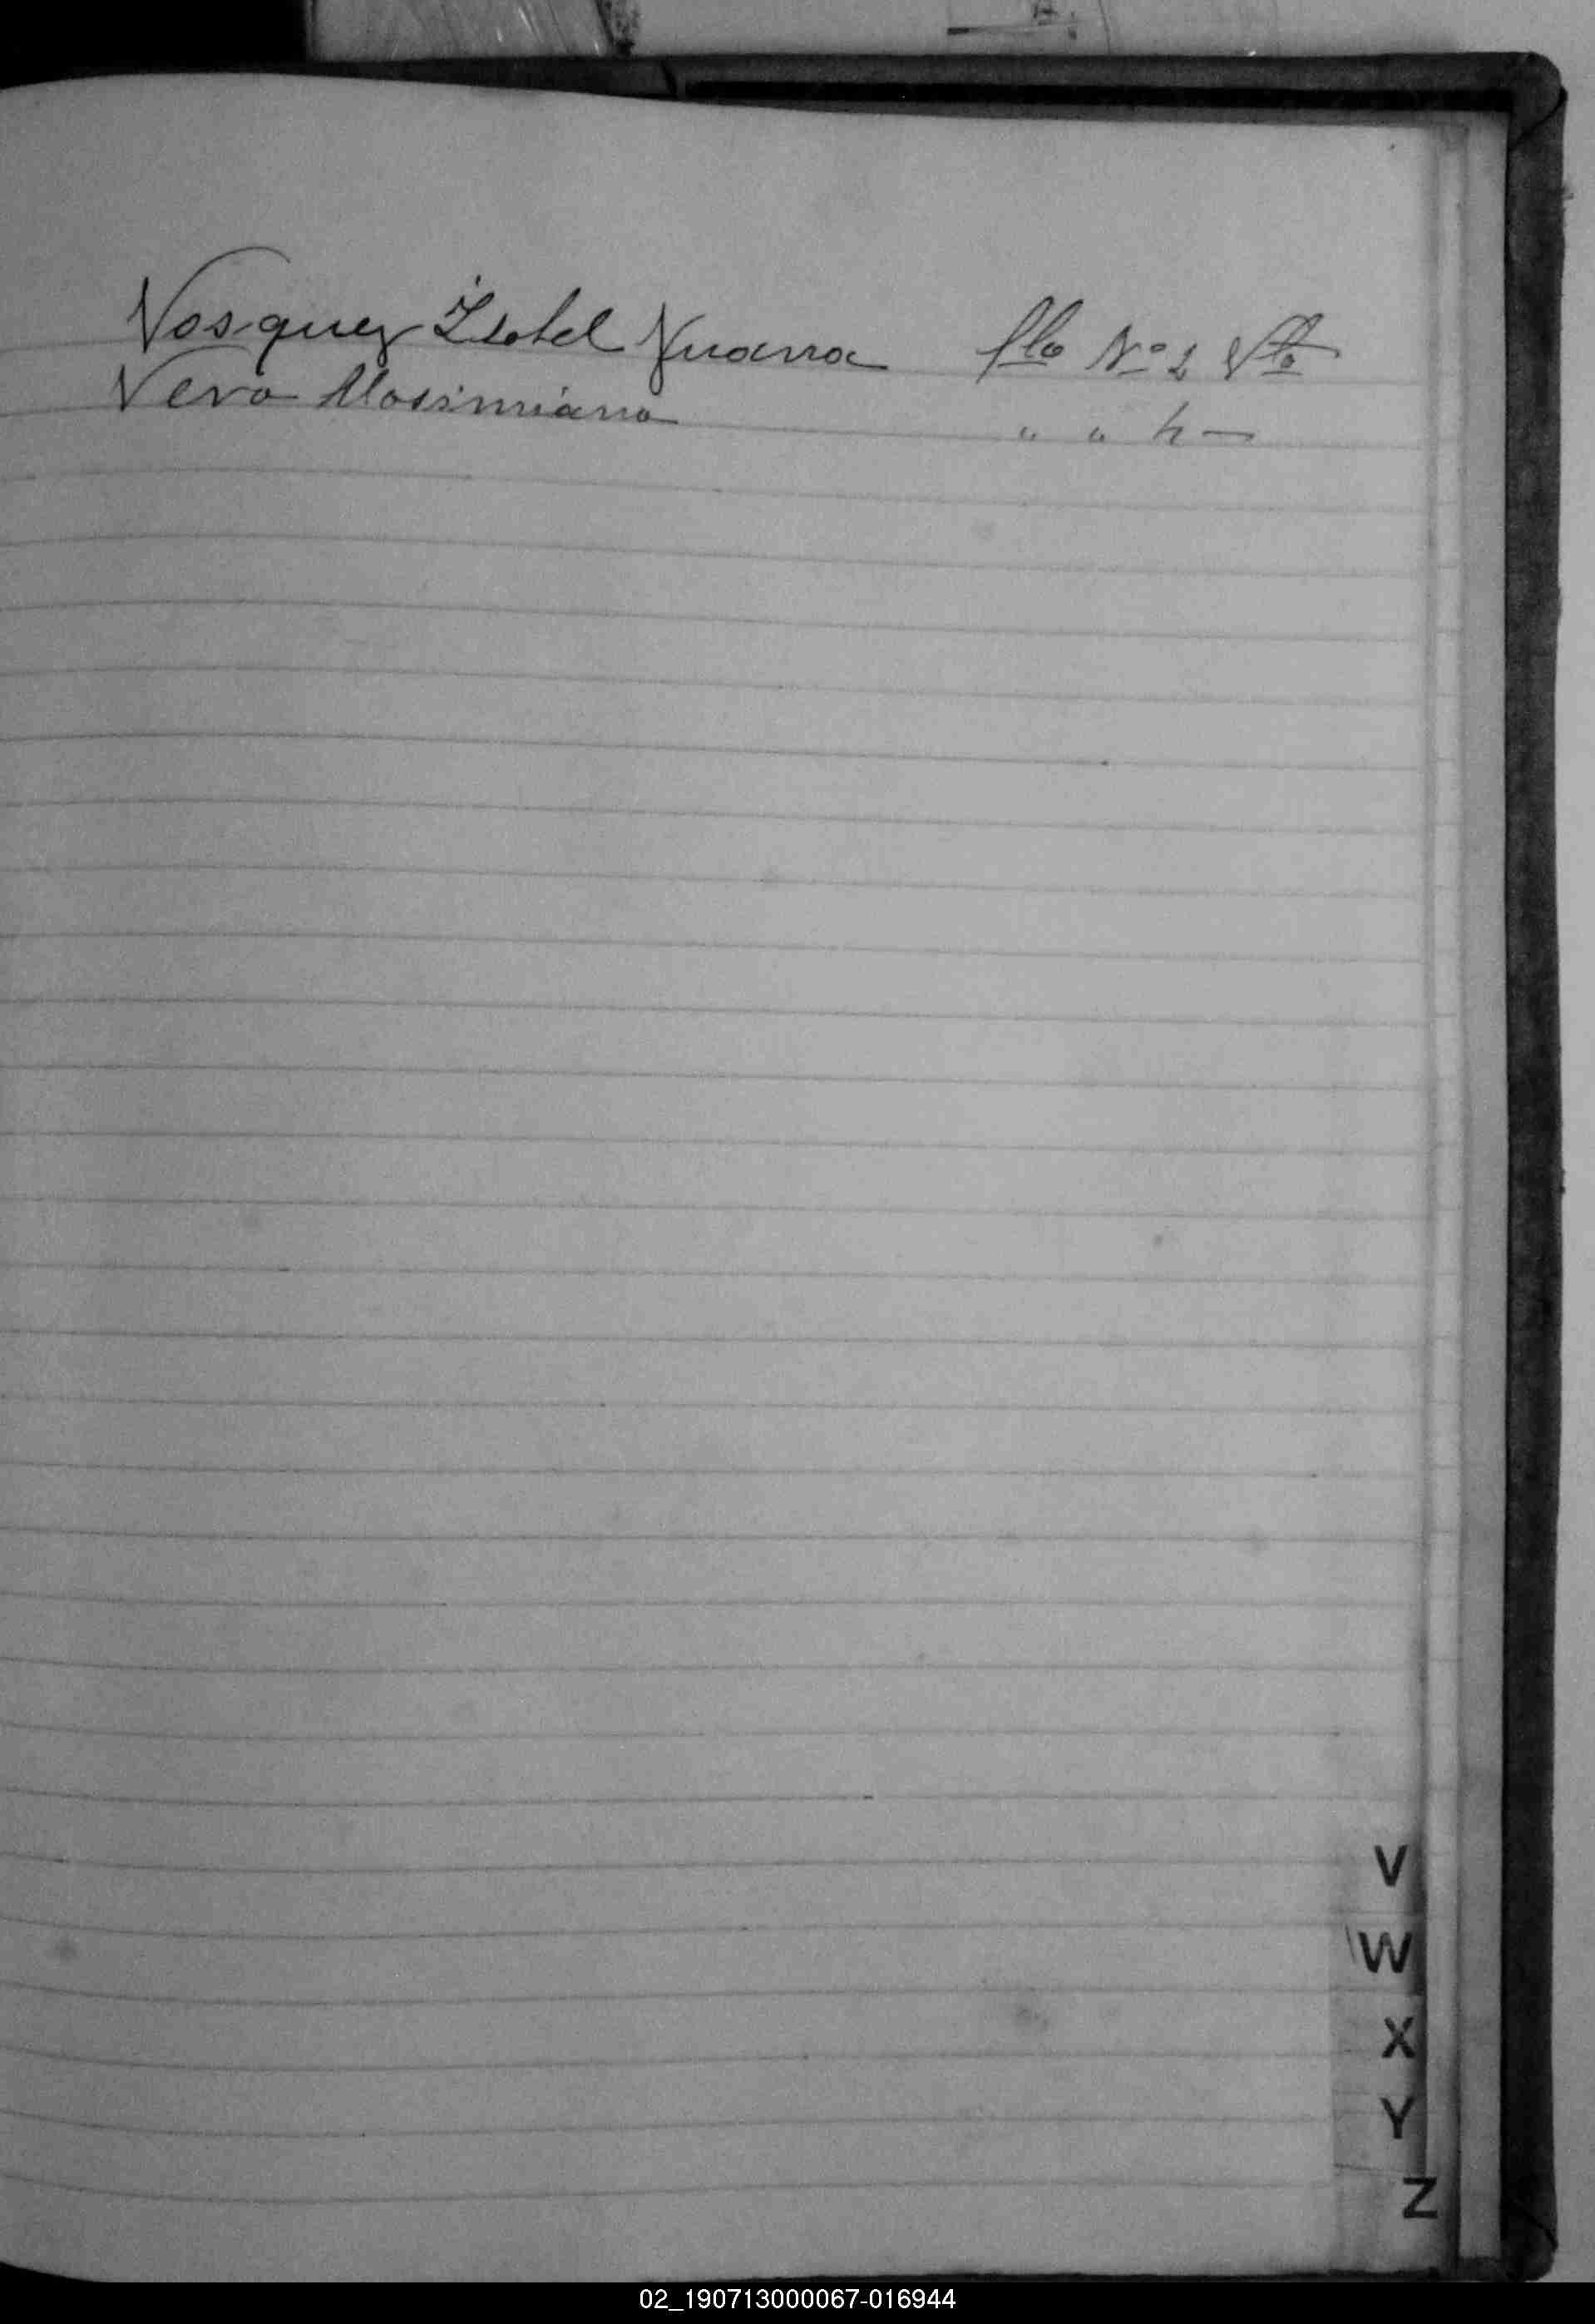 Vasquez Isabel Juana flo Nº 2 Vto
Vera Masimiana " " 4 —
V
W
X
Y
Z
02_190713000067-016944